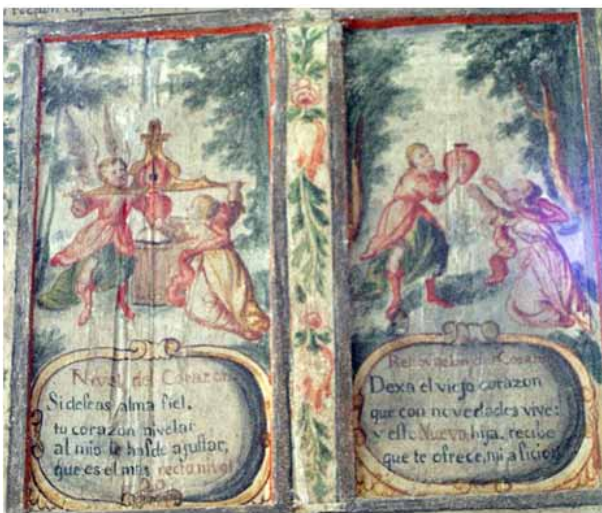 Nivel del Corazon
Si deseas alma fiel,
tu corazon nivelar
al mio te hasde ajustar,
que es el mas recto nivel
Renovacion del Corazon
Dexa el viejo corazon
que con novedades vive:
y este Nuevo, hija, recibe
que te ofrece, mi aficion